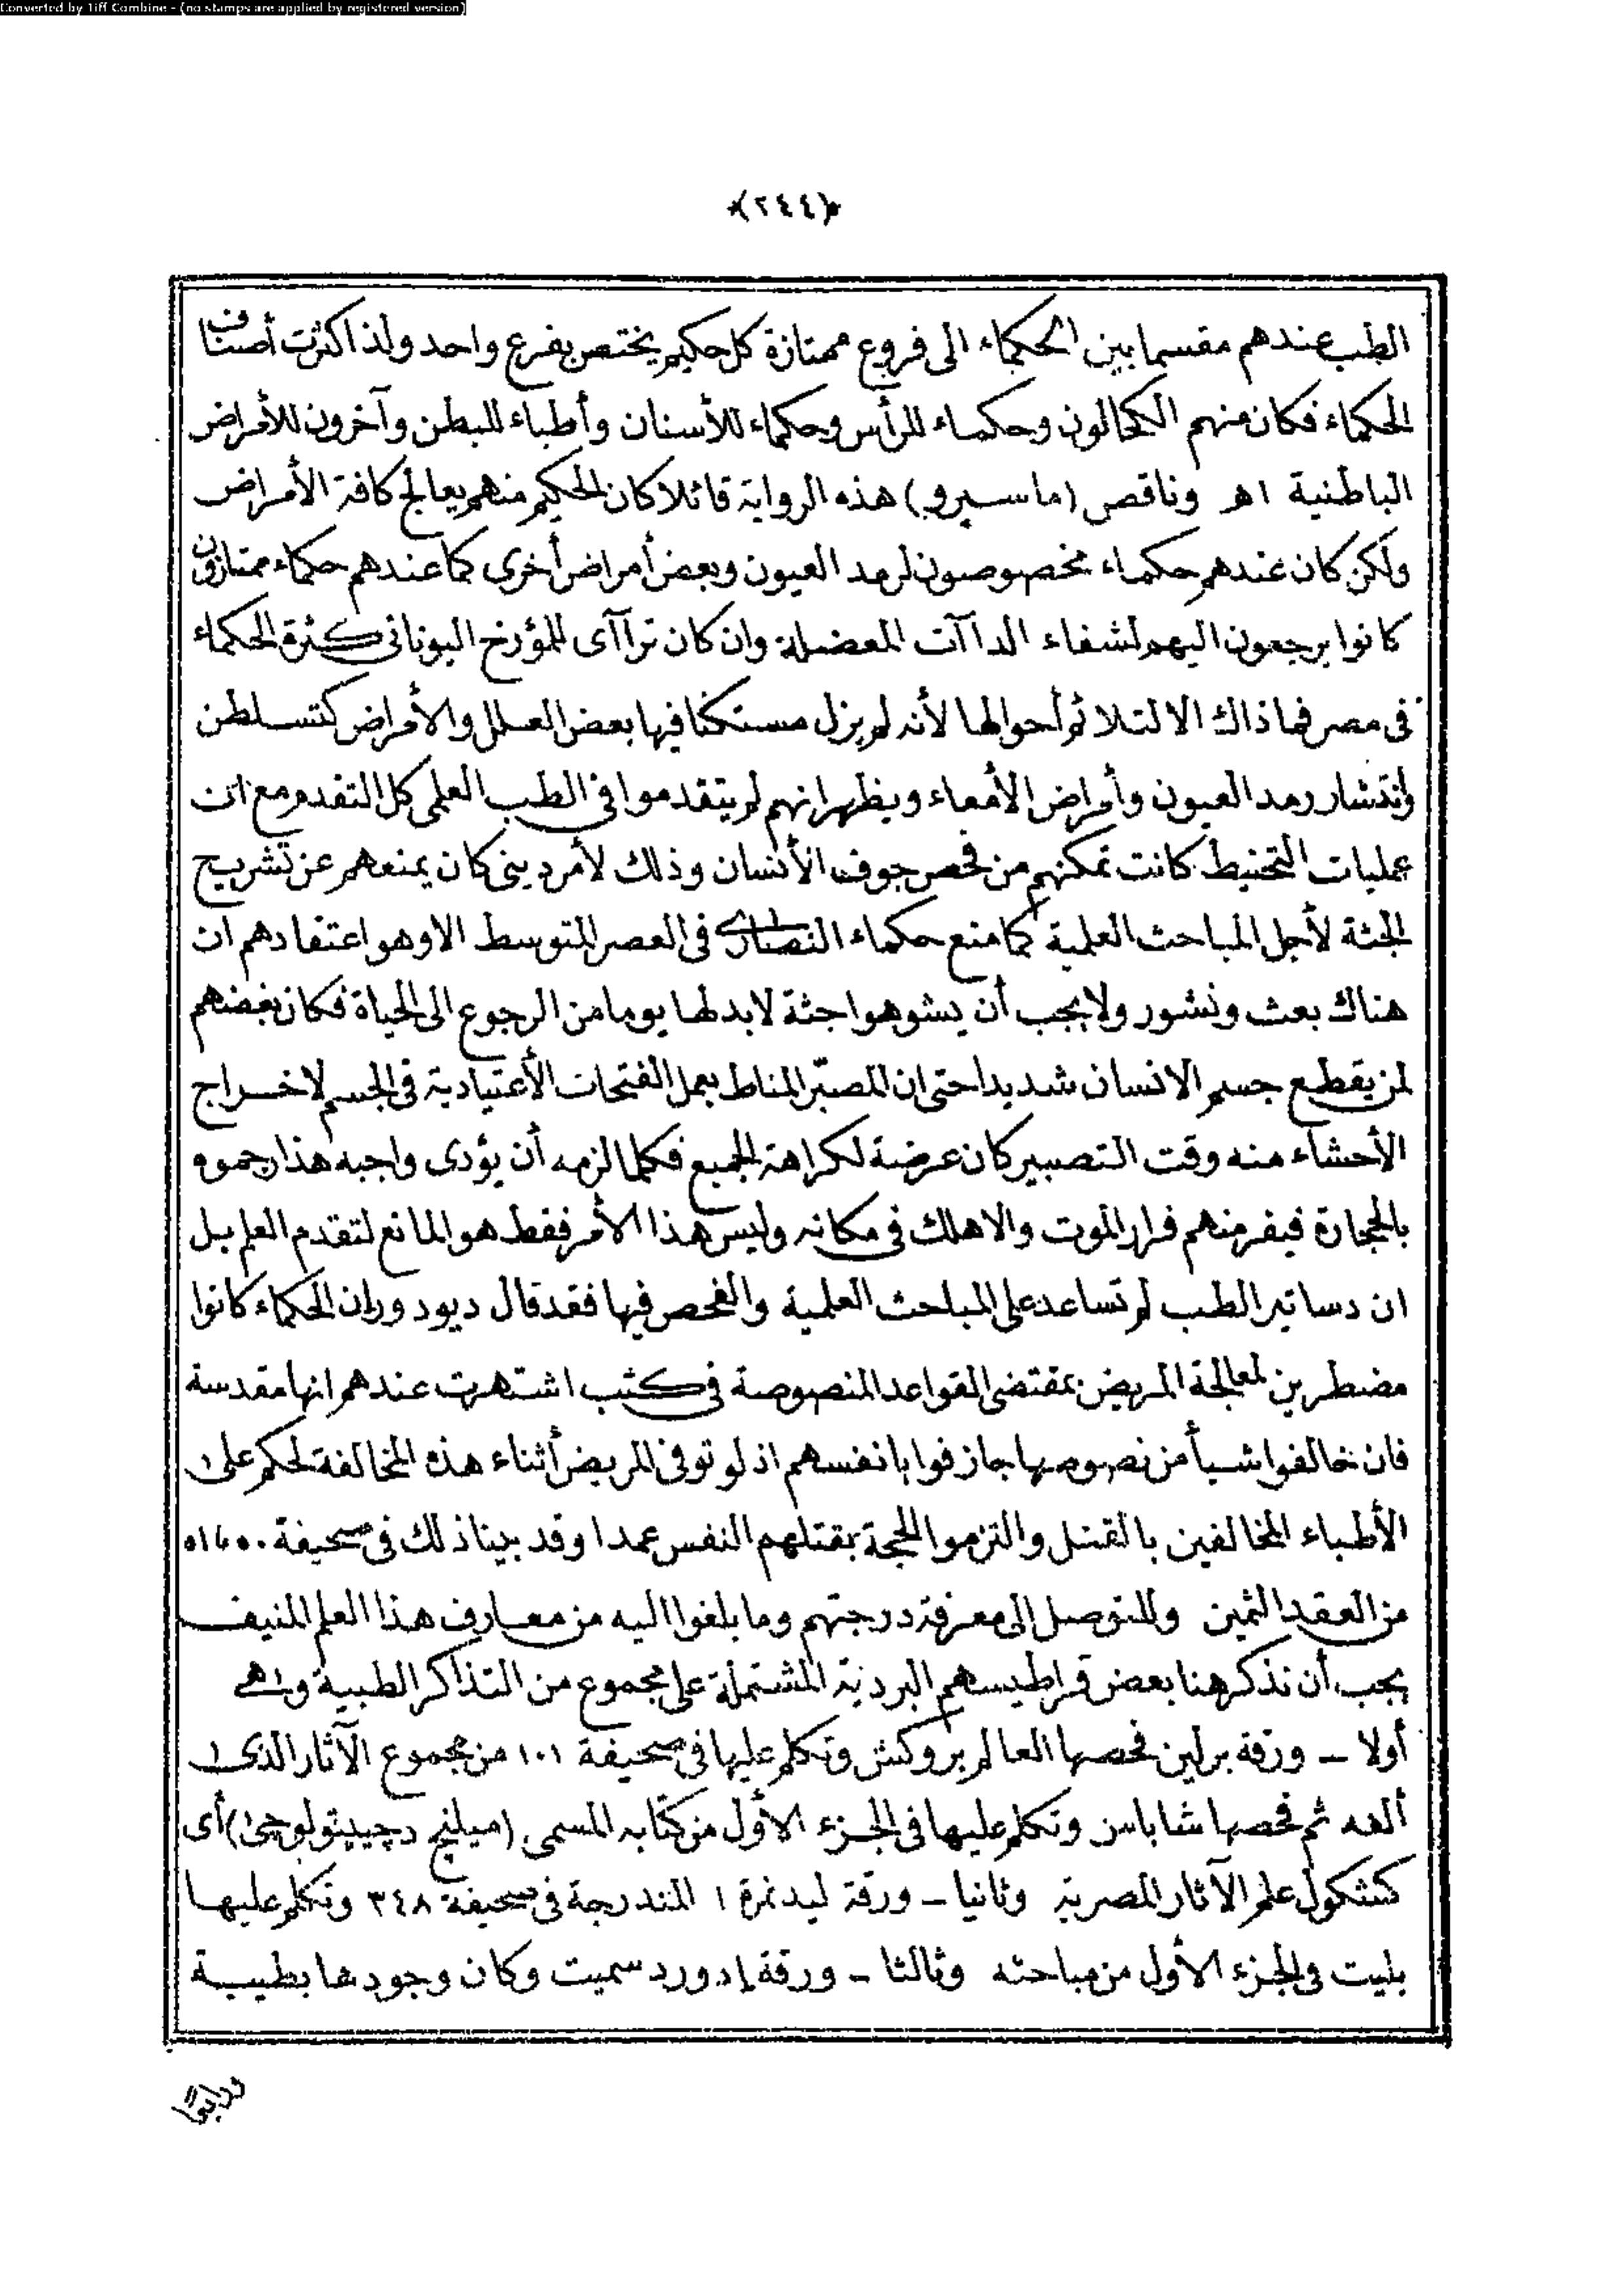 Converted by Tiff Combine - (no stamps are applied by registered version)
﴿٢٤٤﴾
الطب عندهم مقسما بين الحكماء الى فروع ممتازة كل حكيم يختص بفرع واحد ولذا كثرت أصناف
الحكماء فكان منهم الكحالون وحكماء للرأس وحكماء للأسنان وأطباء للبطن وآخرون للأمراض
الباطنية اهـ وناقص (ماسپرو) هذه الرواية قائلا كان الحكيم منهم يعالج كافة الأمراض
ولكن كان عندهم حكماء مخصوصون لرمد العيون وبعض أمراض أخرى كما عندهم حكماء ممتازون
كانوا يرجعون اليهم لشفاء الداآت المعضلة وان كان تراآى للمؤرخ اليونانى كثرة الحكماء
فى مصر فما ذاك الا لتلائم أحوالها لأنه لم يزل مستكنا فيها بعض العلل والأمراض كتسلطن
وانتشار رمد العيون وأمراض الأمعاء ويظهر انهم لم يتقدموا فى الطب العلمى كل التقدم مع ان
عمليات التحنيط كانت تمكنهم من فحص جوف الأنسان وذلك لأمر دينى كان يمنعهم عن تشريح
الجثة لأجل المباحث العلمية كما منع حكماء النصارى فى العصر المتوسط الا وهو اعتقادهم ان
هناك بعث ونشور ولا يجب أن يشوهوا جثة لابد لها يوما من الرجوع الى الحياة فكان بغضهم
لمن يقطع جسم الانسان شديدا حتى ان المصبّر المناط بعمل الفتحات الأعتيادية فى الجسم لاخراج
الأحشاء منه وقت التصبير كان عرضة لكراهة الجميع فكلما لزمه أن يؤدى واجبه هذا رجموه
بالحجارة فيفر منهم فرار الموت والا هلك فى مكانه وليس هذا الأمر فقط هو المانع لتقدم العلم بل
ان دساتير الطب لم تساعد على المباحث العلمية والفحص فيها فقد قال ديودور ان الحكماء كانوا
مضطرين لمعالجة المريض بمقتضى القواعد المنصوصة فى كتب اشتهرت عندهم انها مقدسة
فان خالفوا شيأ من نصوصها جازفوا بانفسهم اذ لو توفى المريض أثناء هذه المخالفة لحكم على
الأطباء المخالفين بالقتل والتزموا الحجة بقتلهم النفس عمدا وقد بينا ذلك فى صحيفة
من العقد الثمين وللتوصل الى معرفة درجتهم وما بلغوا اليه من معارف هذا العلم المنيف
يجب أن نذكر هنا بعض قراطيسهم البردية المشتملة على مجموع من التذاكر الطبية وهى
أولا – ورقة برلين فحصها العالم بروكش وتكلم عليها فى صحيفة ١٠١ من مجموع الآثار الذى
ألفه ثم فحصها شاباس وتكلم عليها فى الجزء الأول من كتابه المسمى (ميلنج دچيپتولوجى) أى
كشكول علم الآثار المصرية وثانيا – ورقة ليد نمرة ١ المندرجة فى صحيفة ٣٤٨ وتكلم عليها
بليت فى الجزء الأول من مباحثه وثالثا – ورقة إدورد سميت وكان وجودها بطيبة